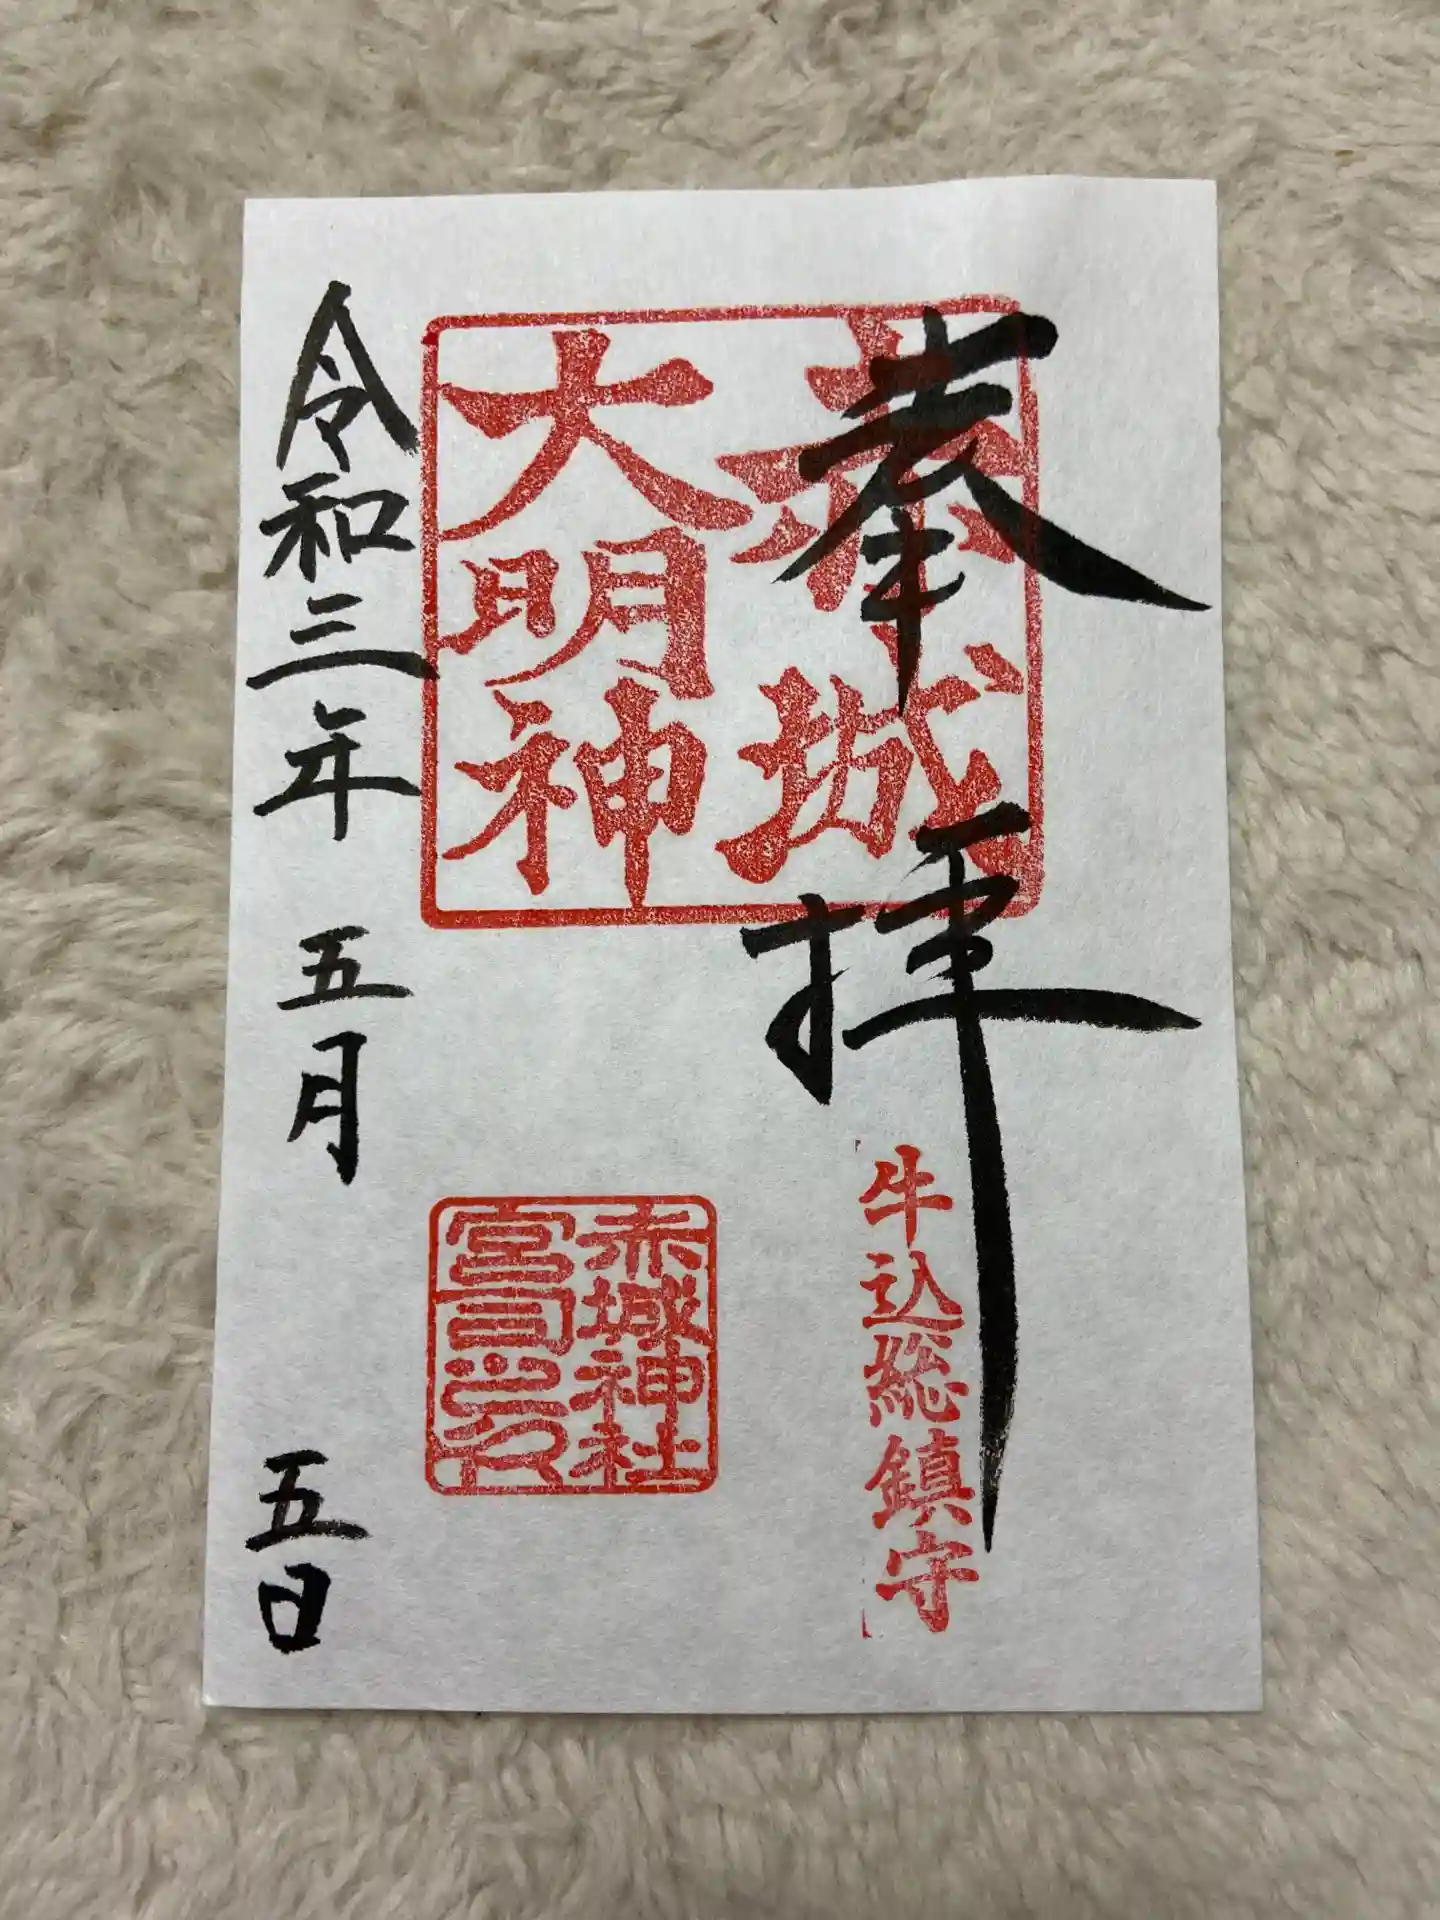 奉拝
牛込総鎮守
赤城
大明神
赤城神社
宮司之印
令和三年 五月 五日